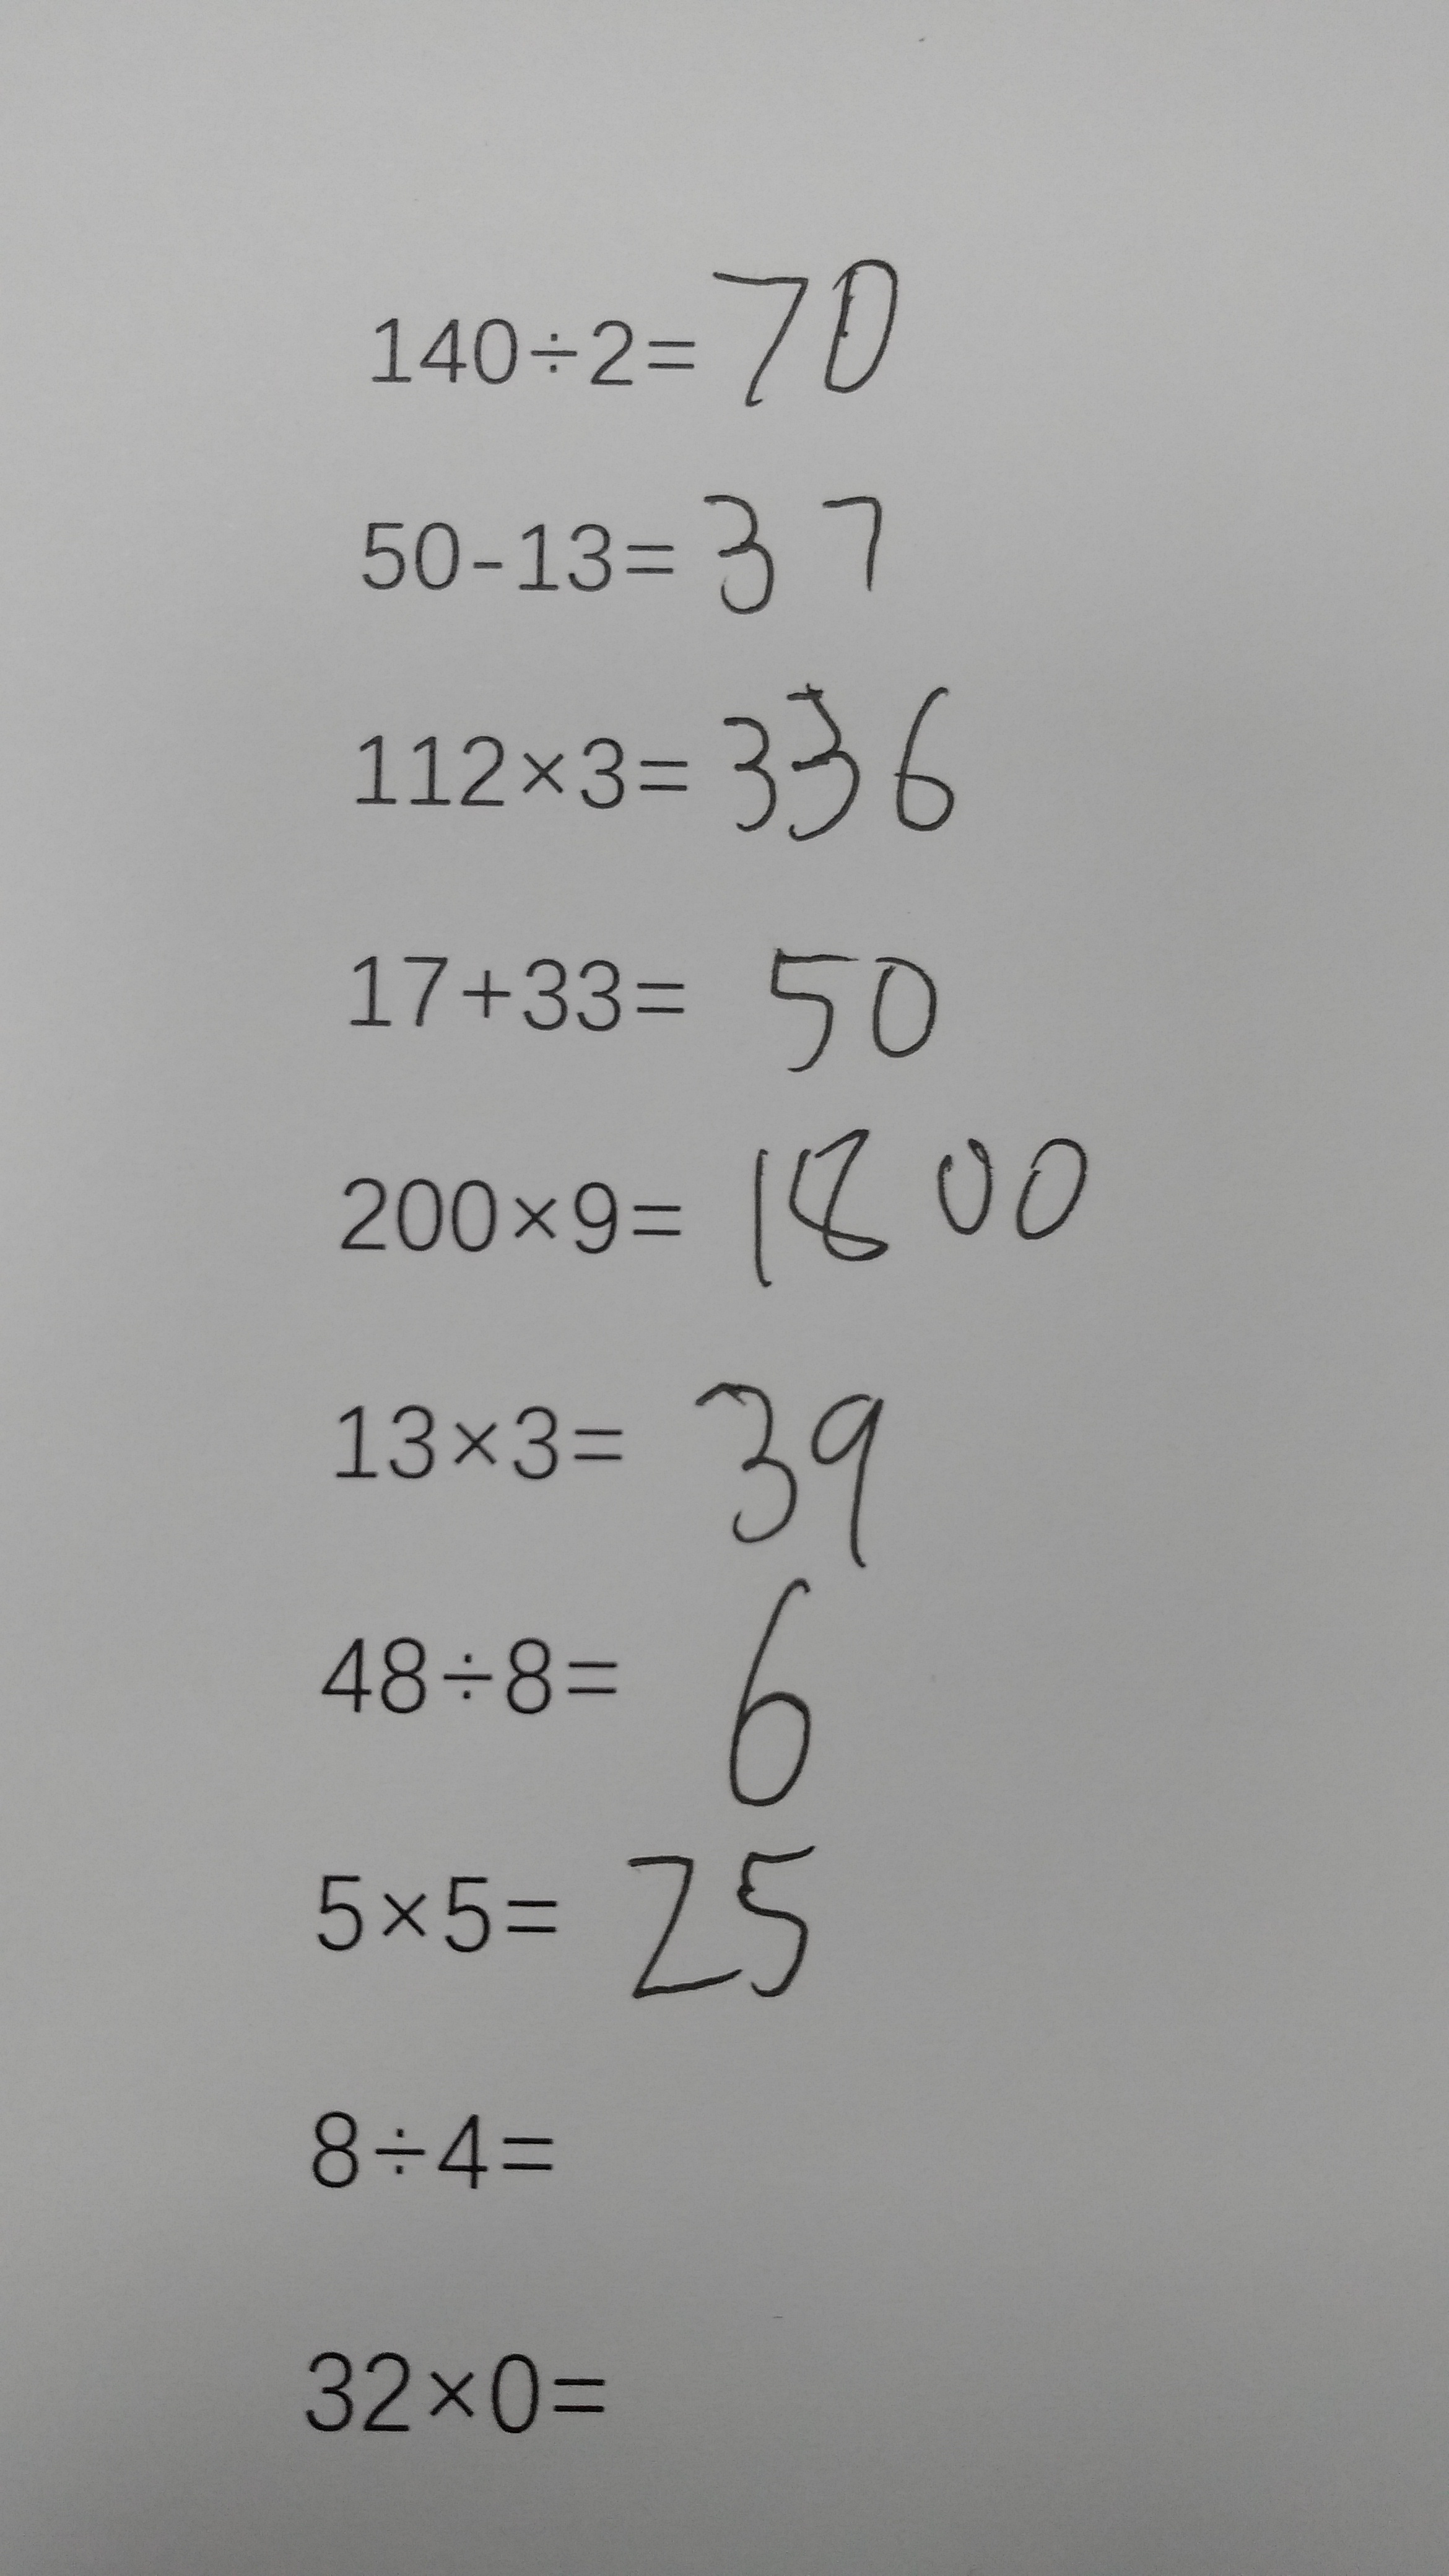 140÷2=70
50-13=37
112×3=336
17+33= 50
200×9= 1800
13×3= 39
48÷8= 6
5×5= 25
8÷4=
32×0=